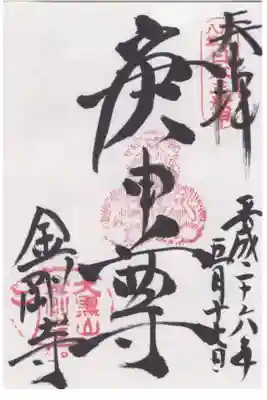 奉拝
平成二十六年
五月十七日
庚申尊
金剛寺
大黒山